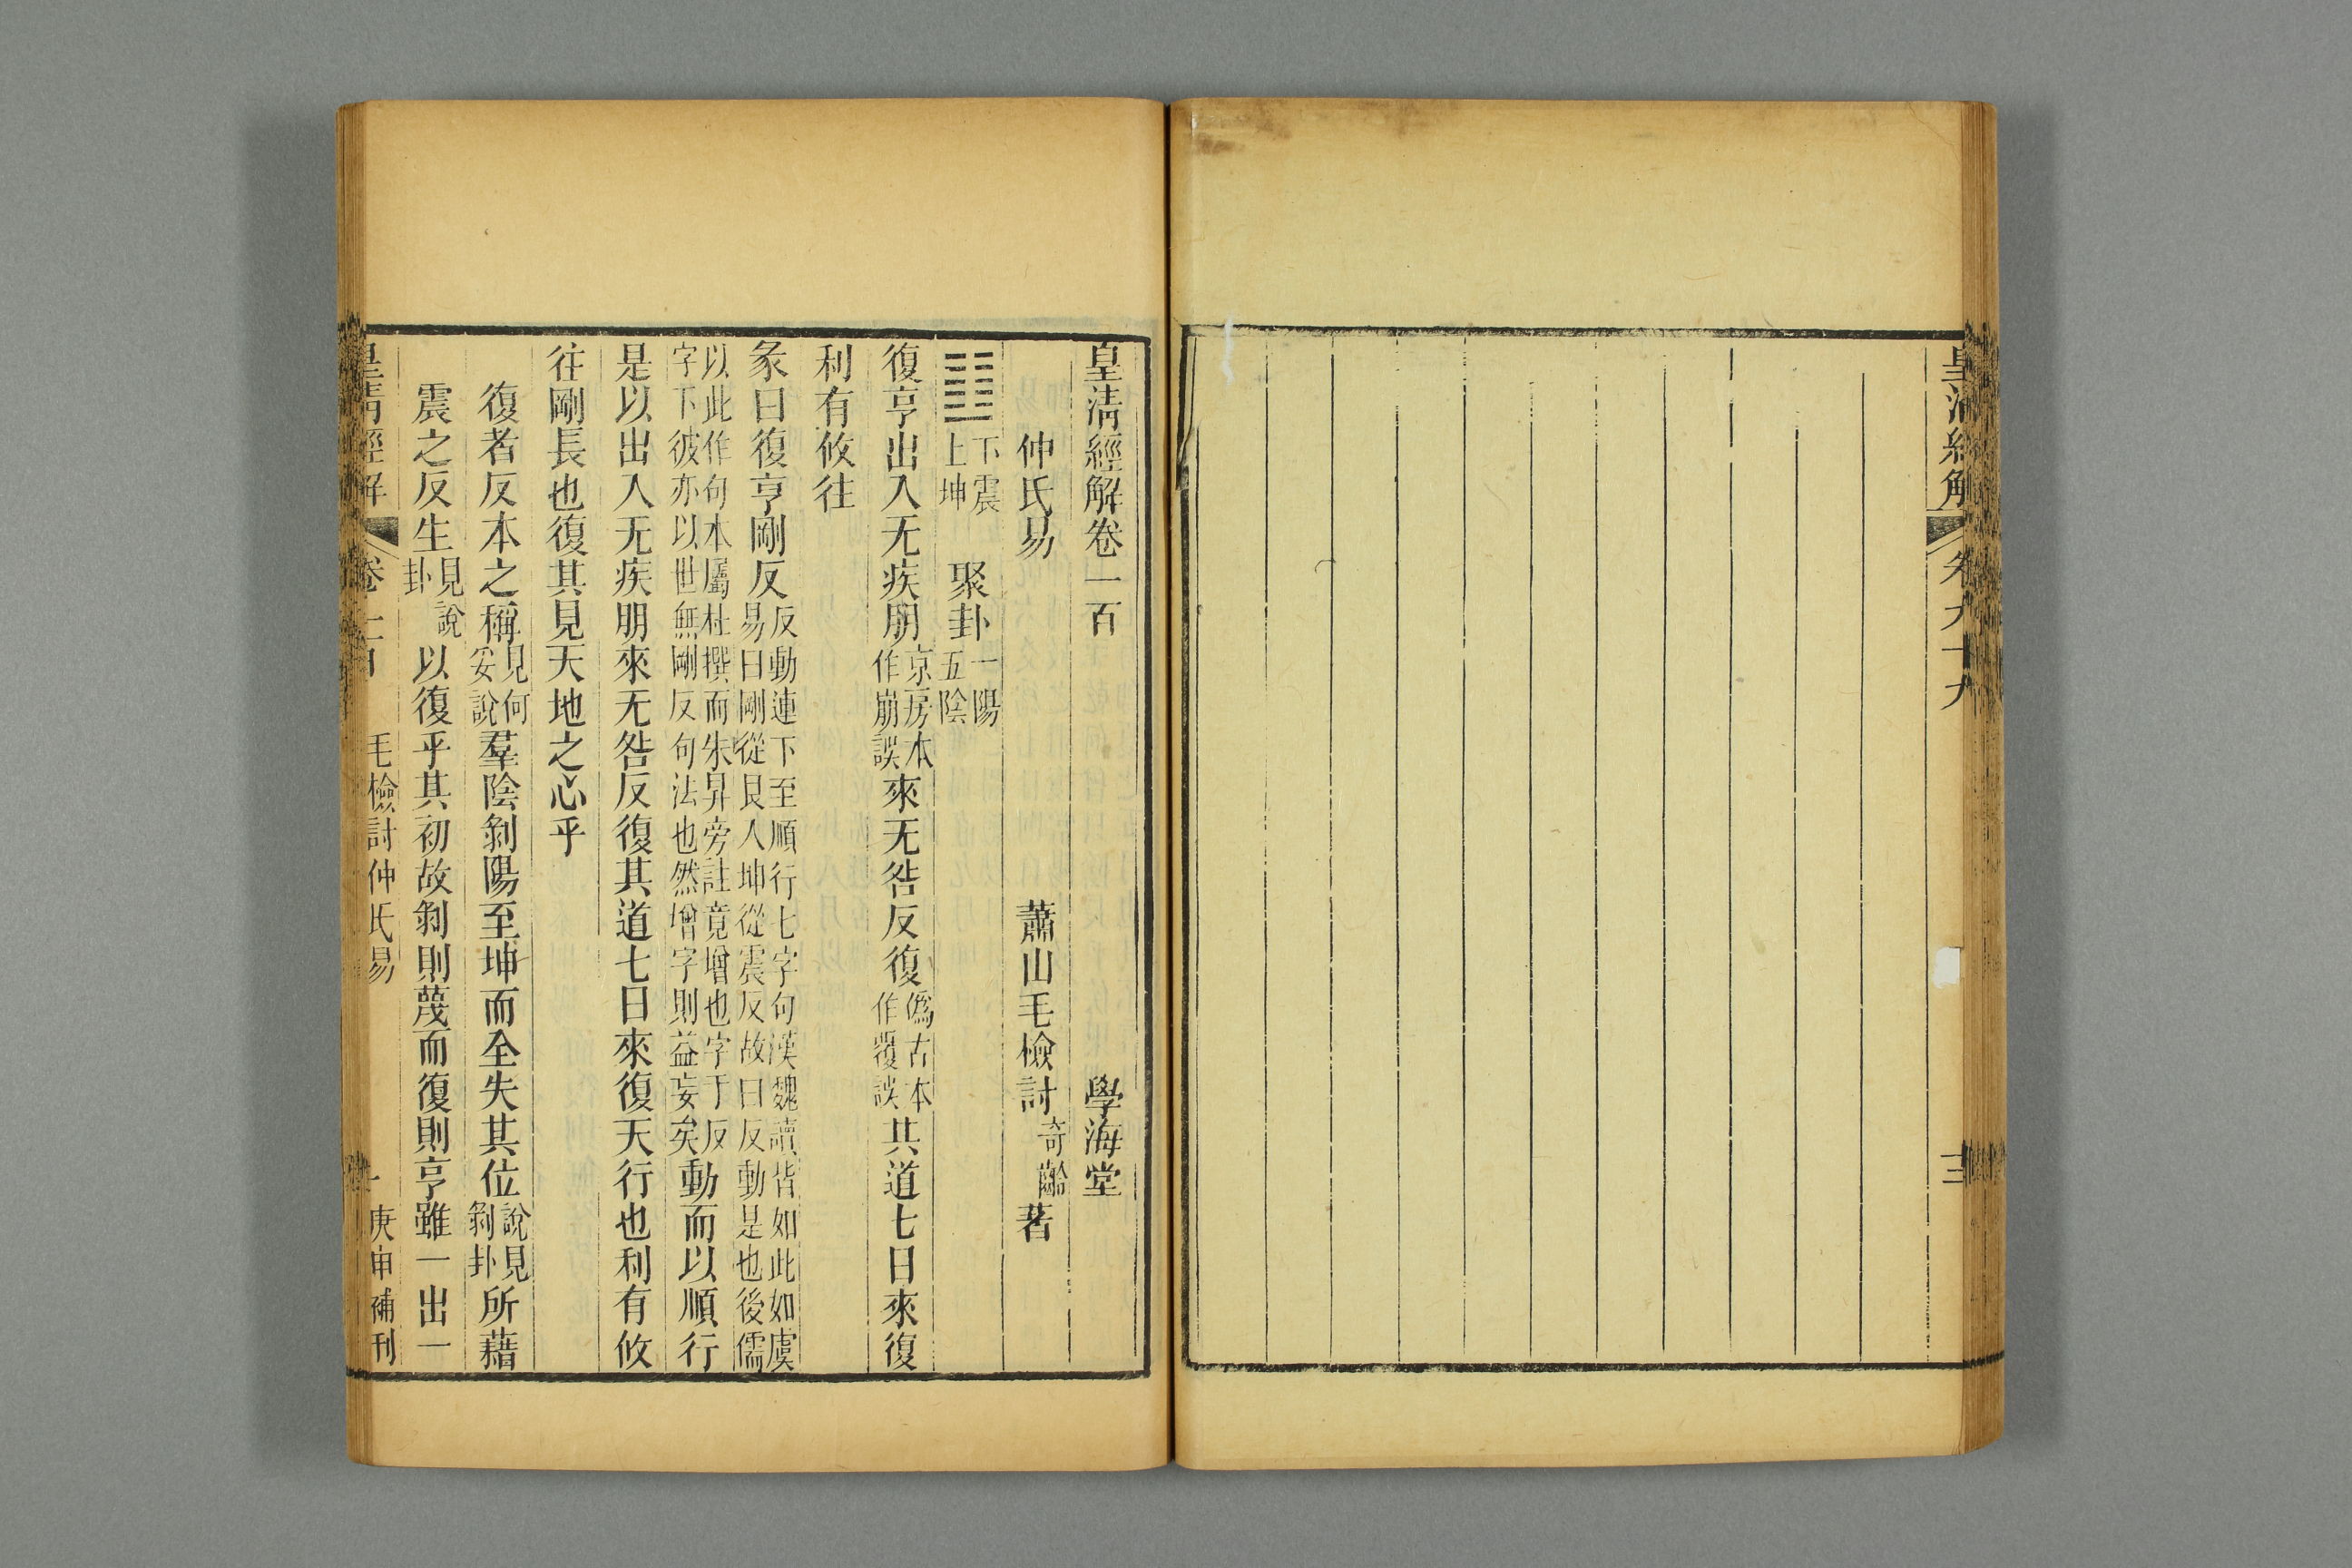 皇清經解 卷九十九 三
皇清經解卷一百 學海堂
仲氏易 蕭山毛檢討奇齡著
䷗下震上坤 聚卦一陽五陰
復亨出入无疾朋京房本作崩誤來无咎反復僞古本作覆誤其道七日來復
利有攸往
彖曰復亨剛反反動連下至順行七字句漢魏讀皆如此如虞易曰剛從艮入坤從震反故曰反動是也後儒
以此作句本屬杜撰而朱昇旁註竟增也字于反字下彼亦以世無剛反句法也然增字則益妄矣動而以順行
是以出入无疾朋來无咎反復其道七日來復天行也利有攸
往剛長也復其見天地之心乎
復者反本之稱見何妥說羣陰剝陽至坤而全失其位說見剝卦所藉
震之反生見說卦以復乎其初故剝則蔑而復則亨雖一出一
皇清經解 卷一百 毛檢討仲氏易 一 庚申補刊